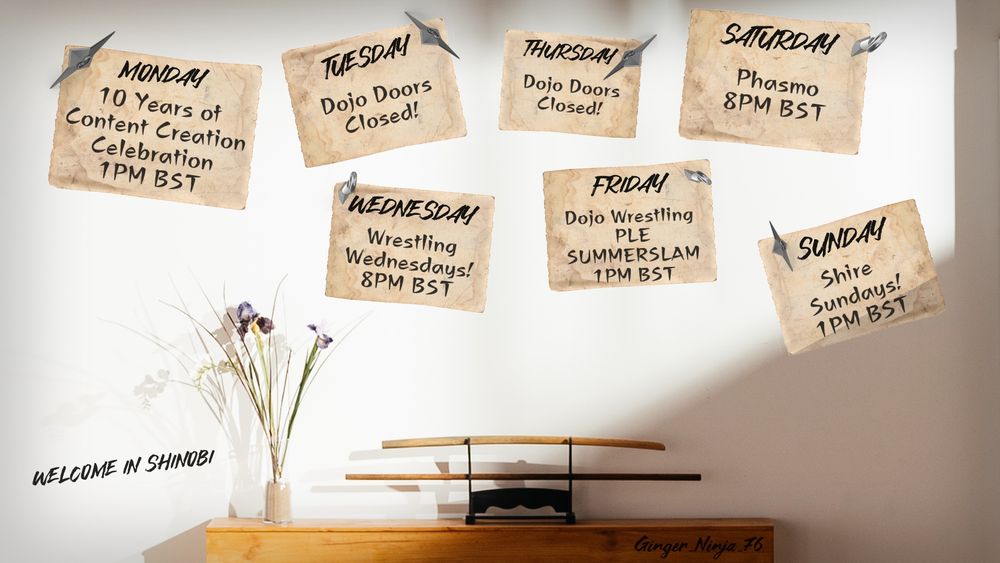 MONDAY
10 Years of
Content Creation
Celebration
1PM BST
TUESDAY
Dojo Doors
Closed!
WEDNESDAY
Wrestling
Wednesdays!
8PM BST
THURSDAY
Dojo Doors
Closed!
FRIDAY
Dojo Wrestling
PLE
SUMMERSLAM
1PM BST
SATURDAY
Phasmo
8PM BST
SUNDAY
Shire
Sundays!
1PM BST
WELCOME IN SHINOBI
Ginger_Ninja_76